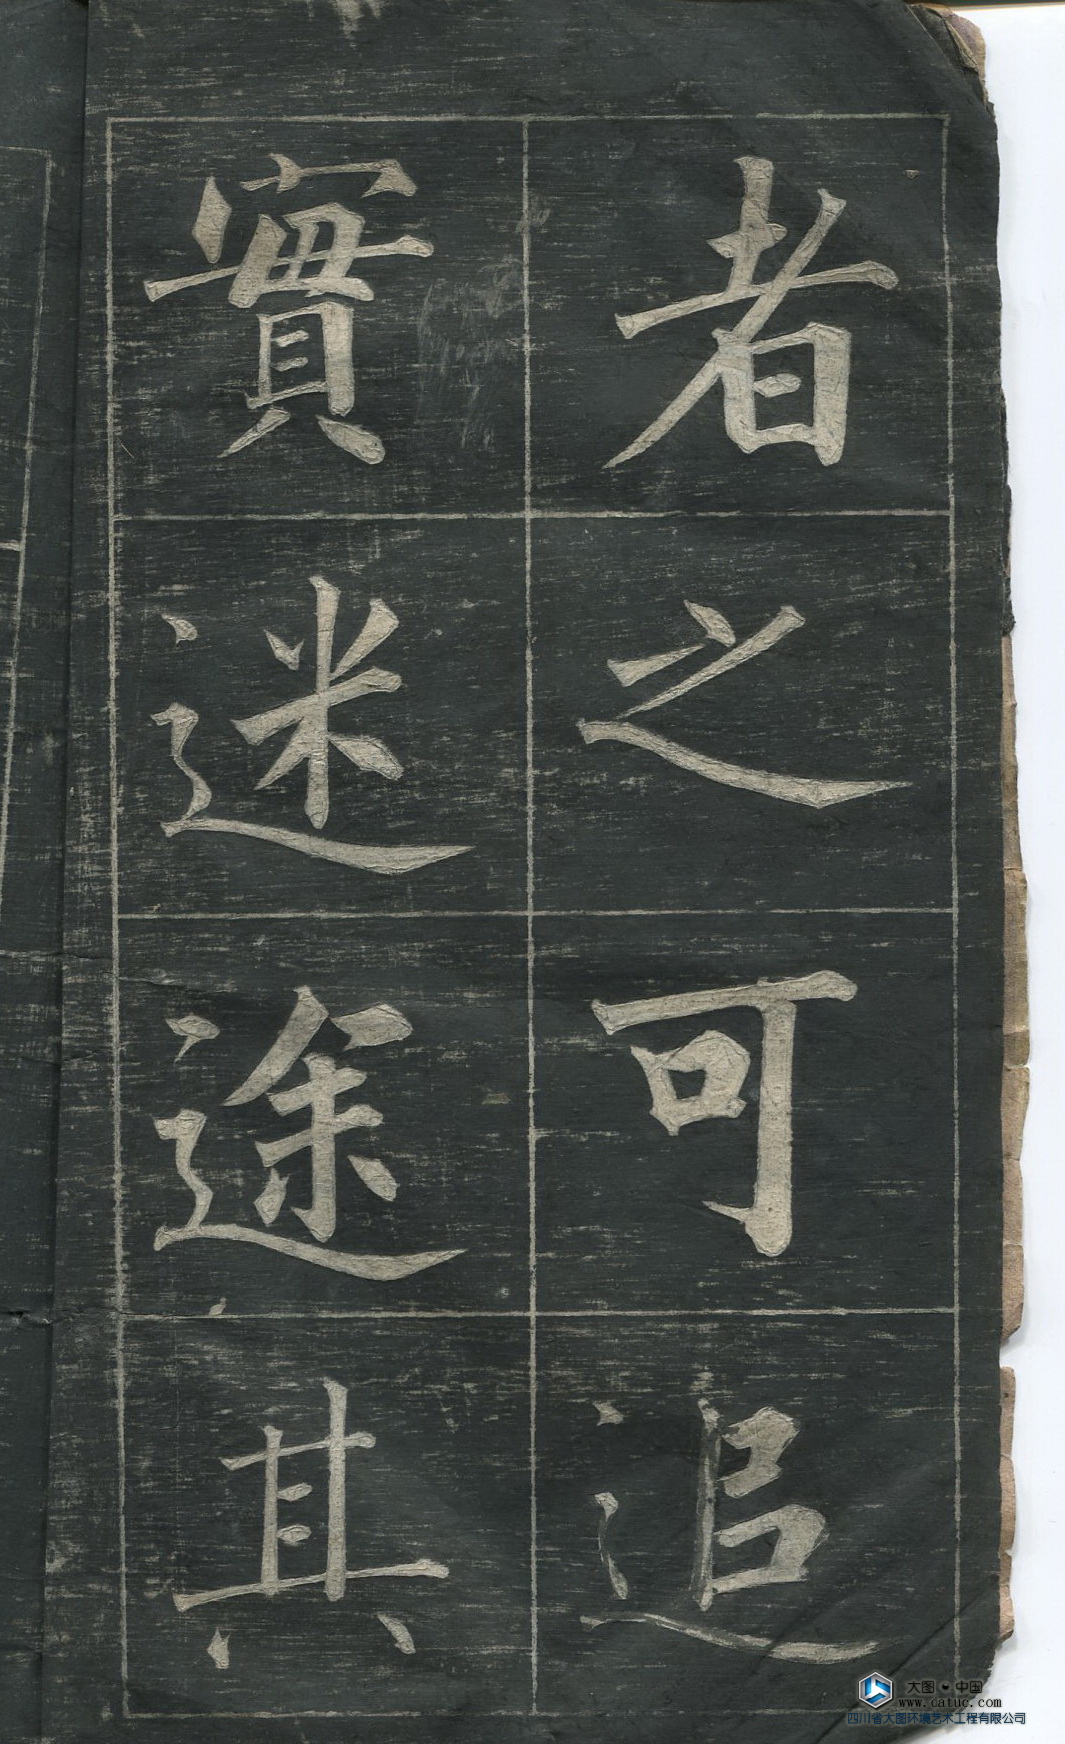 者之可追
實迷途其
大图 中国
www.catuc.com
四川省大图环境艺术工程有限公司